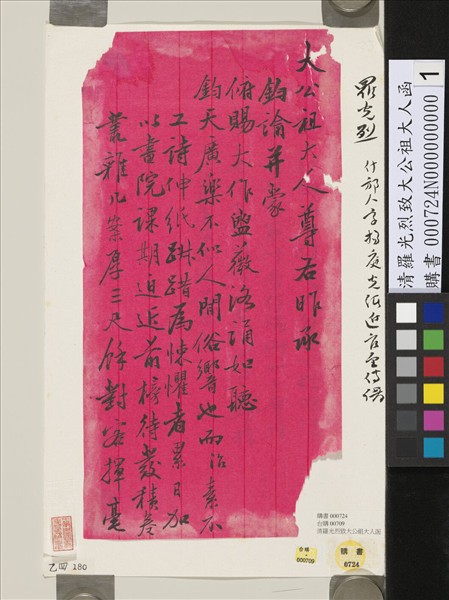 清羅光烈致大公祖大人函
購書 000724N000000000 1
羅光烈
什邡人字
大公祖大人尊右昨承
鈞諭并蒙
俯賜大作盥薇洛誦如聽
鈞天廣樂不似人間俗響也而治素不
工詩伸紙踟躇為悚懼者累日加
以書院課期迫近前榜待發積卷
叢雜几案厚三尺餘對客揮毫
購書 000724
台購 00709
清羅光烈致大公祖大人函
台購
000709
購書
0724
乙四 180